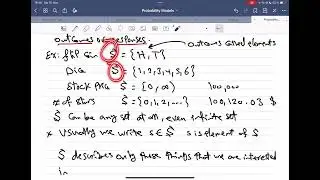 Probability Models
outcomes or responses.
Ex: flip coin S = {H, T} outcomes called elements
Dice S = {1,2,3,4,5,6}
Stock price S = [0, ∞) 100,000
# of stars S = {0,1,2,...} 100,120.03 $
S Can be any set at all, even infinite set
* Usually we write s ∈ S s is element of S
S describes only those things that we are interested
in